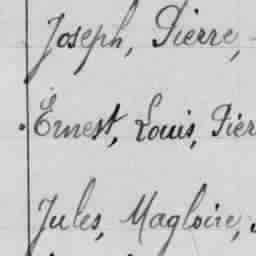 Joseph, Pierre,
Ernest, Louis, Pier
Jules, Magloire,